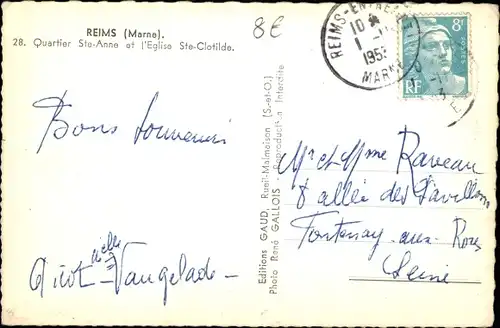 REIMS (Marne).
28. Quartier Ste-Anne et l'Eglise Ste-Clotilde.
8€
REIMS-ENTREPÔT
10
1 -11
1953
MARNE
8F
RF
Bons souvenirs
Editions GAUD, Rueil-Malmaison (S.-et-O.)
Photo René GALLOIS - Reproduction Interdite
Mr et Mme Raveau
8 allée des Pavillons
Fontenay-aux-Roses
Seine
Vangelade